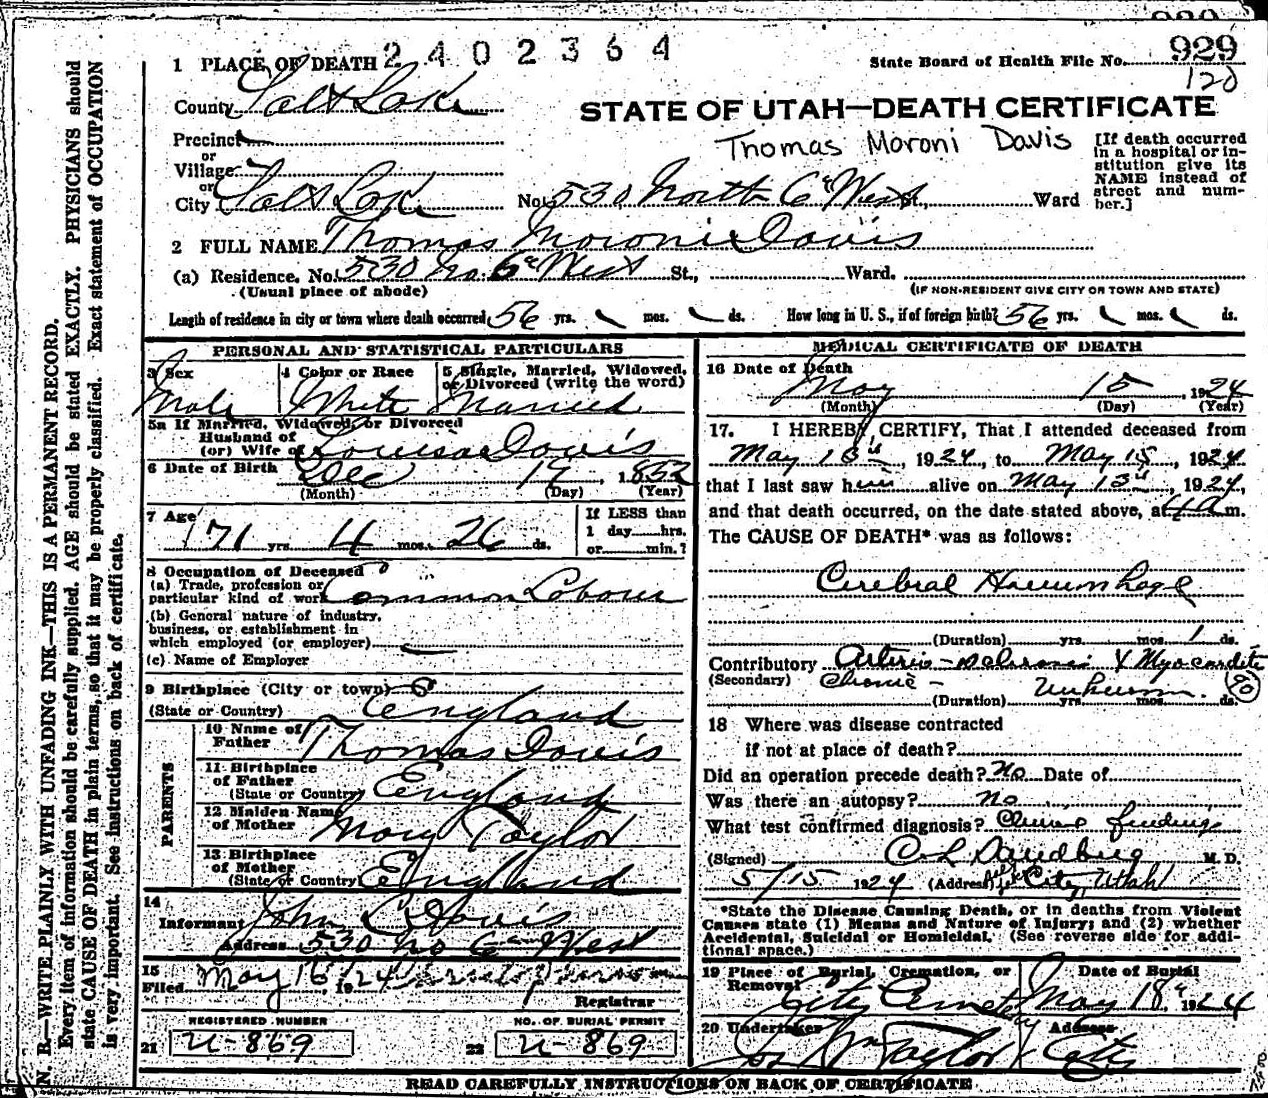 929
2402364
State Board of Health File No. 929
120
1 PLACE OF DEATH
County Salt Lake
STATE OF UTAH—DEATH CERTIFICATE
Thomas Moroni Davis
[If death occurred in a hospital or institution give its NAME instead of street and number.]
Precinct
or
Village
or
City Salt Lake No. 530 North 6th West St., Ward
2 FULL NAME Thomas Moroni Davis
(a) Residence. No. 530 No. 6th West St., Ward.
(Usual place of abode) (IF NON-RESIDENT GIVE CITY OR TOWN AND STATE)
Length of residence in city or town where death occurred 56 yrs. mos. ds. How long in U. S., if of foreign birth? 56 yrs. mos. ds.
PERSONAL AND STATISTICAL PARTICULARS
3 Sex 4 Color or Race 5 Single, Married, Widowed, or Divorced (write the word)
Male White Married
5a If Married, Widowed, or Divorced
Husband of
(or) Wife of Louisa Davis
6 Date of Birth Dec 19, 1852
(Month) (Day) (Year)
7 Age 71 yrs. 4 mos. 26 ds.
If LESS than
1 day hrs.
or min.?
8 Occupation of Deceased
(a) Trade, profession or
particular kind of work Common Labour
(b) General nature of industry,
business, or establishment in
which employed (or employer)
(c) Name of Employer
9 Birthplace (City or town)
(State or Country) England
PARENTS
10 Name of
Father Thomas Davis
11 Birthplace
of Father
(State or Country) England
12 Maiden Name
of Mother Mary Taylor
13 Birthplace
of Mother
(State or Country) England
14
Informant John L Davis
Address 530 No 6th West
15
Filed May 16 1924
Registrar
REGISTERED NUMBER NO. OF BURIAL PERMIT
21 U-869 22 U-869
MEDICAL CERTIFICATE OF DEATH
16 Date of Death
May 15, 1924
(Month) (Day) (Year)
17. I HEREBY CERTIFY, That I attended deceased from
May 13th, 1924, to May 15, 1924
that I last saw him alive on May 13th, 1924,
and that death occurred, on the date stated above, at m.
The CAUSE OF DEATH* was as follows:
Cerebral Haemorrhage
(Duration) yrs. mos. 1 ds.
Contributory Arterio-sclerosis & Myocarditis
(Secondary) Chronic - Unknown. 90
(Duration) yrs. mos. ds.
18 Where was disease contracted
if not at place of death?
Did an operation precede death? No Date of
Was there an autopsy? no
What test confirmed diagnosis? findings
(Signed) C. L. Sandberg M. D.
5/15 1924 (Address) City, Utah
*State the Disease Causing Death, or in deaths from Violent
Causes state (1) Means and Nature of Injury; and (2) whether
Accidental, Suicidal or Homicidal. (See reverse side for addi-
tional space.)
19 Place of Burial, Cremation, or Removal Date of Burial
City Cemetery May 18th, 1924
20 Undertaker Address
Jos Wm Taylor City
READ CAREFULLY INSTRUCTIONS ON BACK OF CERTIFICATE
N. B.—WRITE PLAINLY WITH UNFADING INK—THIS IS A PERMANENT RECORD.
Every item of information should be carefully supplied. AGE should be stated EXACTLY. PHYSICIANS should
state CAUSE OF DEATH in plain terms, so that it may be properly classified. Exact statement of OCCUPATION
is very important. See instructions on back of certificate.